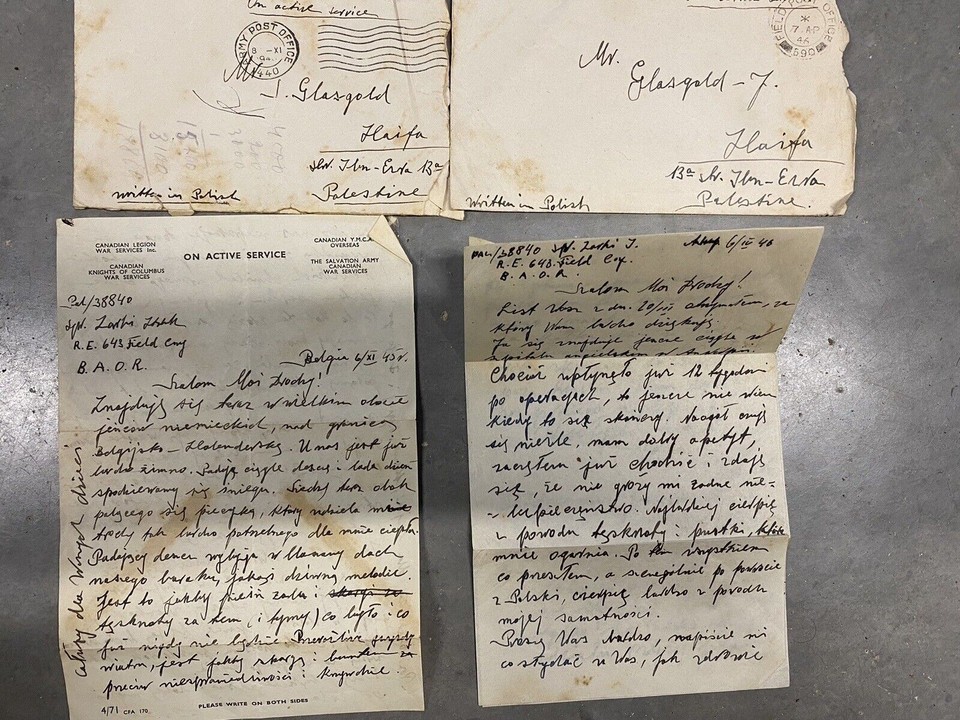 On active service
ARMY POST OFFICE
8 -XI
440
Mr.
J. Glasgold
Haifa
str. Ibn-Ezra 13a
Palestine
written in Polish
FIELD POST OFFICE
7 AP
46
590
Mr.
Glasgold - J.
Haifa
13a str. Ibn-Ezra
Palestine.
Written in Polish
CANADIAN LEGION
WAR SERVICES Inc.
CANADIAN
KNIGHTS OF COLUMBUS
WAR SERVICES
ON ACTIVE SERVICE
CANADIAN Y.M.C.A.
OVERSEAS
THE SALVATION ARMY
CANADIAN
WAR SERVICES
Pal/38840
Spr. Zarski
R.E. 643 Field Coy
B. A. O. R.
Belgia 6/XI 45 r.
Szalom Moi Drodzy!
Znajduję się teraz w wielkim obozie
jeńców niemieckich, nad granicą
Belgijsko - Holenderską. U nas jest już
bardzo zimno. Padają ciągle deszcze i lada dzień
spodziewamy się śniegu. Siedzę teraz obok
palącego się piecyka, który udziela
trochę tak bardzo potrzebnego dla mnie ciepła.
Padający deszcz wybija w blaszany dach
naszego baraku, jakąś dziwną melodię.
Jest to jakby pieśń żalu i
tęsknoty za tem, (i tymi) co było i co
już nigdy nie będzie.
wiatru, jest jakby skargą i
przeciw niesprawiedliwości i krzywdzie.
całusy dla Waszych dzieci
4/71 CFA 170
PLEASE WRITE ON BOTH SIDES
PAL/38840 Spr. Zarski J.
R.E. 643 Field Coy.
B. A. O. R.
6/IV 46
Szalom Moi Drodzy!
List Wasz z dn. 20/III otrzymałem, za
który Wam bardzo dziękuję.
Ja się znajduję jeszcze ciągle w
szpitalu angielskim w
Chociaż upłynęło już 12 tygodni
po operacjach, to jeszcze nie wiem
kiedy to się skończy. Naogół czuję
się nieźle, mam dobry apetyt,
zacząłem już chodzić i zdaje
się, że nie grozi mi żadne nie-
bezpieczeństwo. Najbardziej cierpię
z powodu tęsknoty i pustki, która
mnie ogarnia. Po tem wszystkiem
co przeszłem, a szczególnie po powrocie
z Polski, cierpię bardzo z powodu
mojej samotności.
Proszę Was bardzo, napiszcie mi
co słychać u Was, jak zdrowie